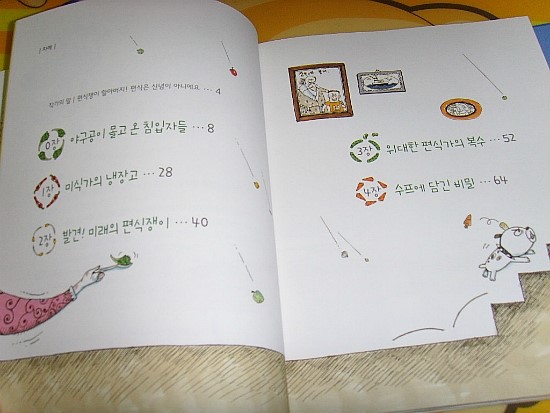 | 차례 |
작가의 말 | 편식쟁이 할아버지! 편식은 신념이 아니에요 … 4
0장 야구공이 물고 온 침입자들 … 8
1장 미식가의 냉장고 … 28
2장 발견! 미래의 편식쟁이 … 40
3장 위대한 편식가의 복수 … 52
4장 수프에 담긴 비밀 … 64